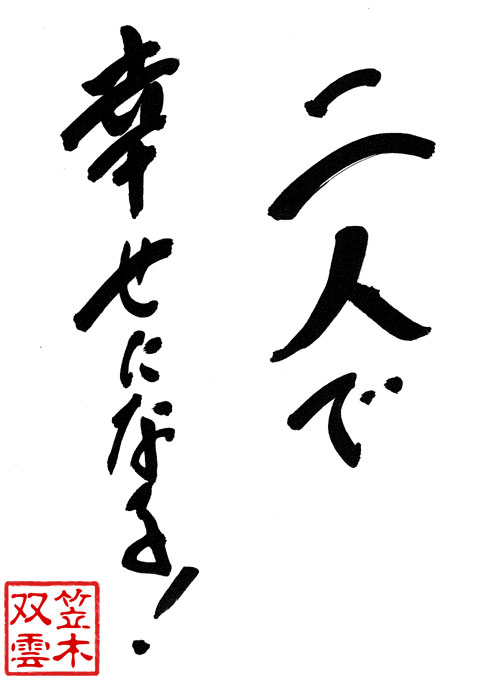 二人で
幸せになる!
笠木
双雲